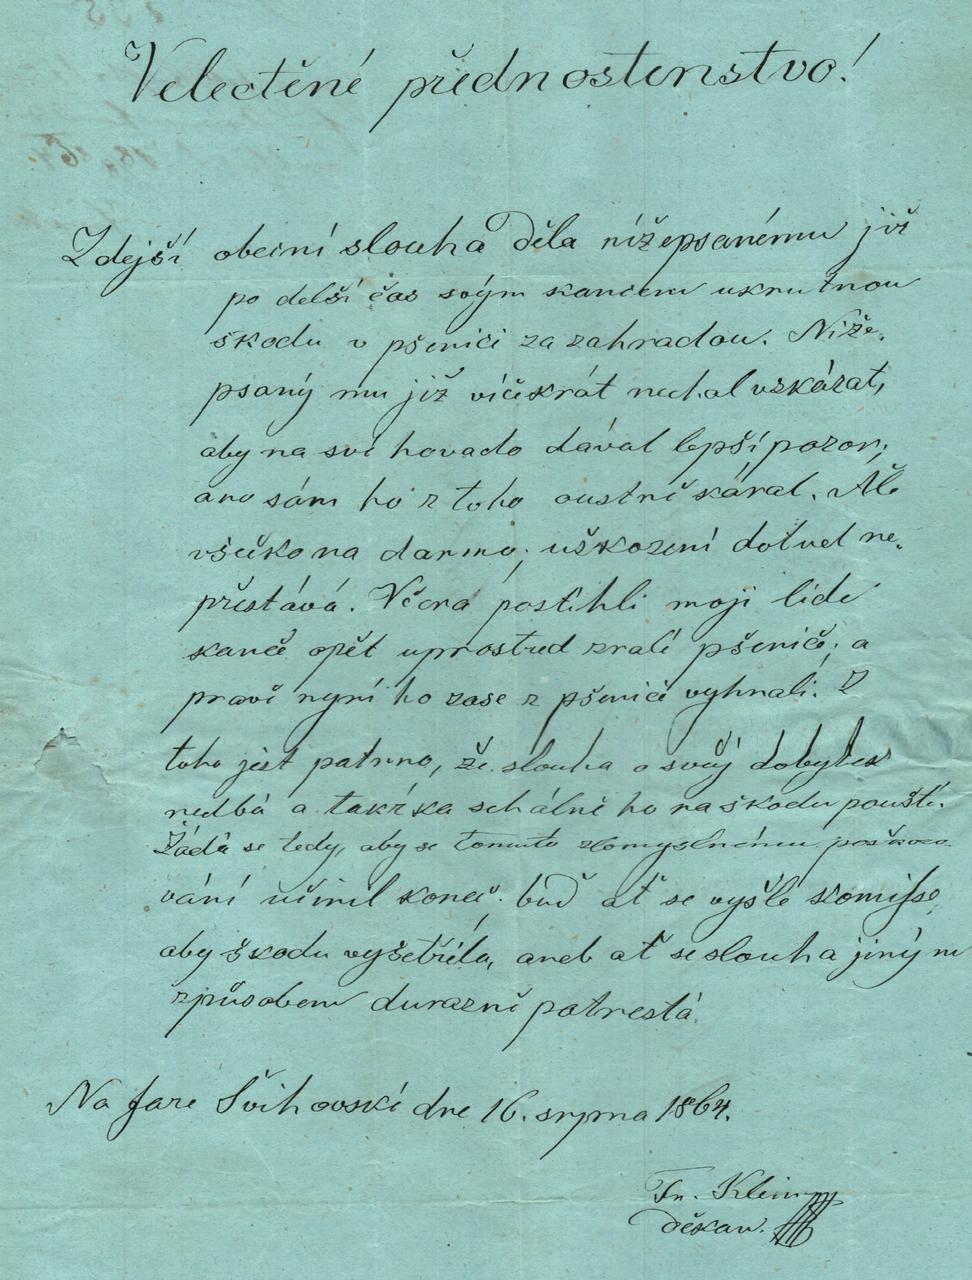 Velectěné přednostenstvo!
Zdejší obecní slouha děla nížepsanému již
po delší čas svým kancem ukrutnou
škodu v pšenici za zahradou. Níže-
psaný mu již vícekrát nechal vzkázat,
aby na své hovado dával lepší pozor,
ano sám ho z toho oustně káral. Ale
všecko na darmo; uškození dotud ne-
přestává. Včera postihli moji lidé
kance opět uprostřed zralé pšenice; a
pravě nyní ho zase z pšenice vyhnali. Z
toho jest patrno, že slouha o svůj dobytek
nedbá a takřka schálně ho na škodu pouští.
Žádá se tedy, aby se tomuto zlomyslnému poškozo-
vání učinil konec: buď ať se vyšle komisse,
aby škodu vyšetřila, aneb ať se slouha jiným
způsobem durazně potrestá.
Na faře Švihovské dne 16. srpna 1864.
Fr. Klein
děkan.